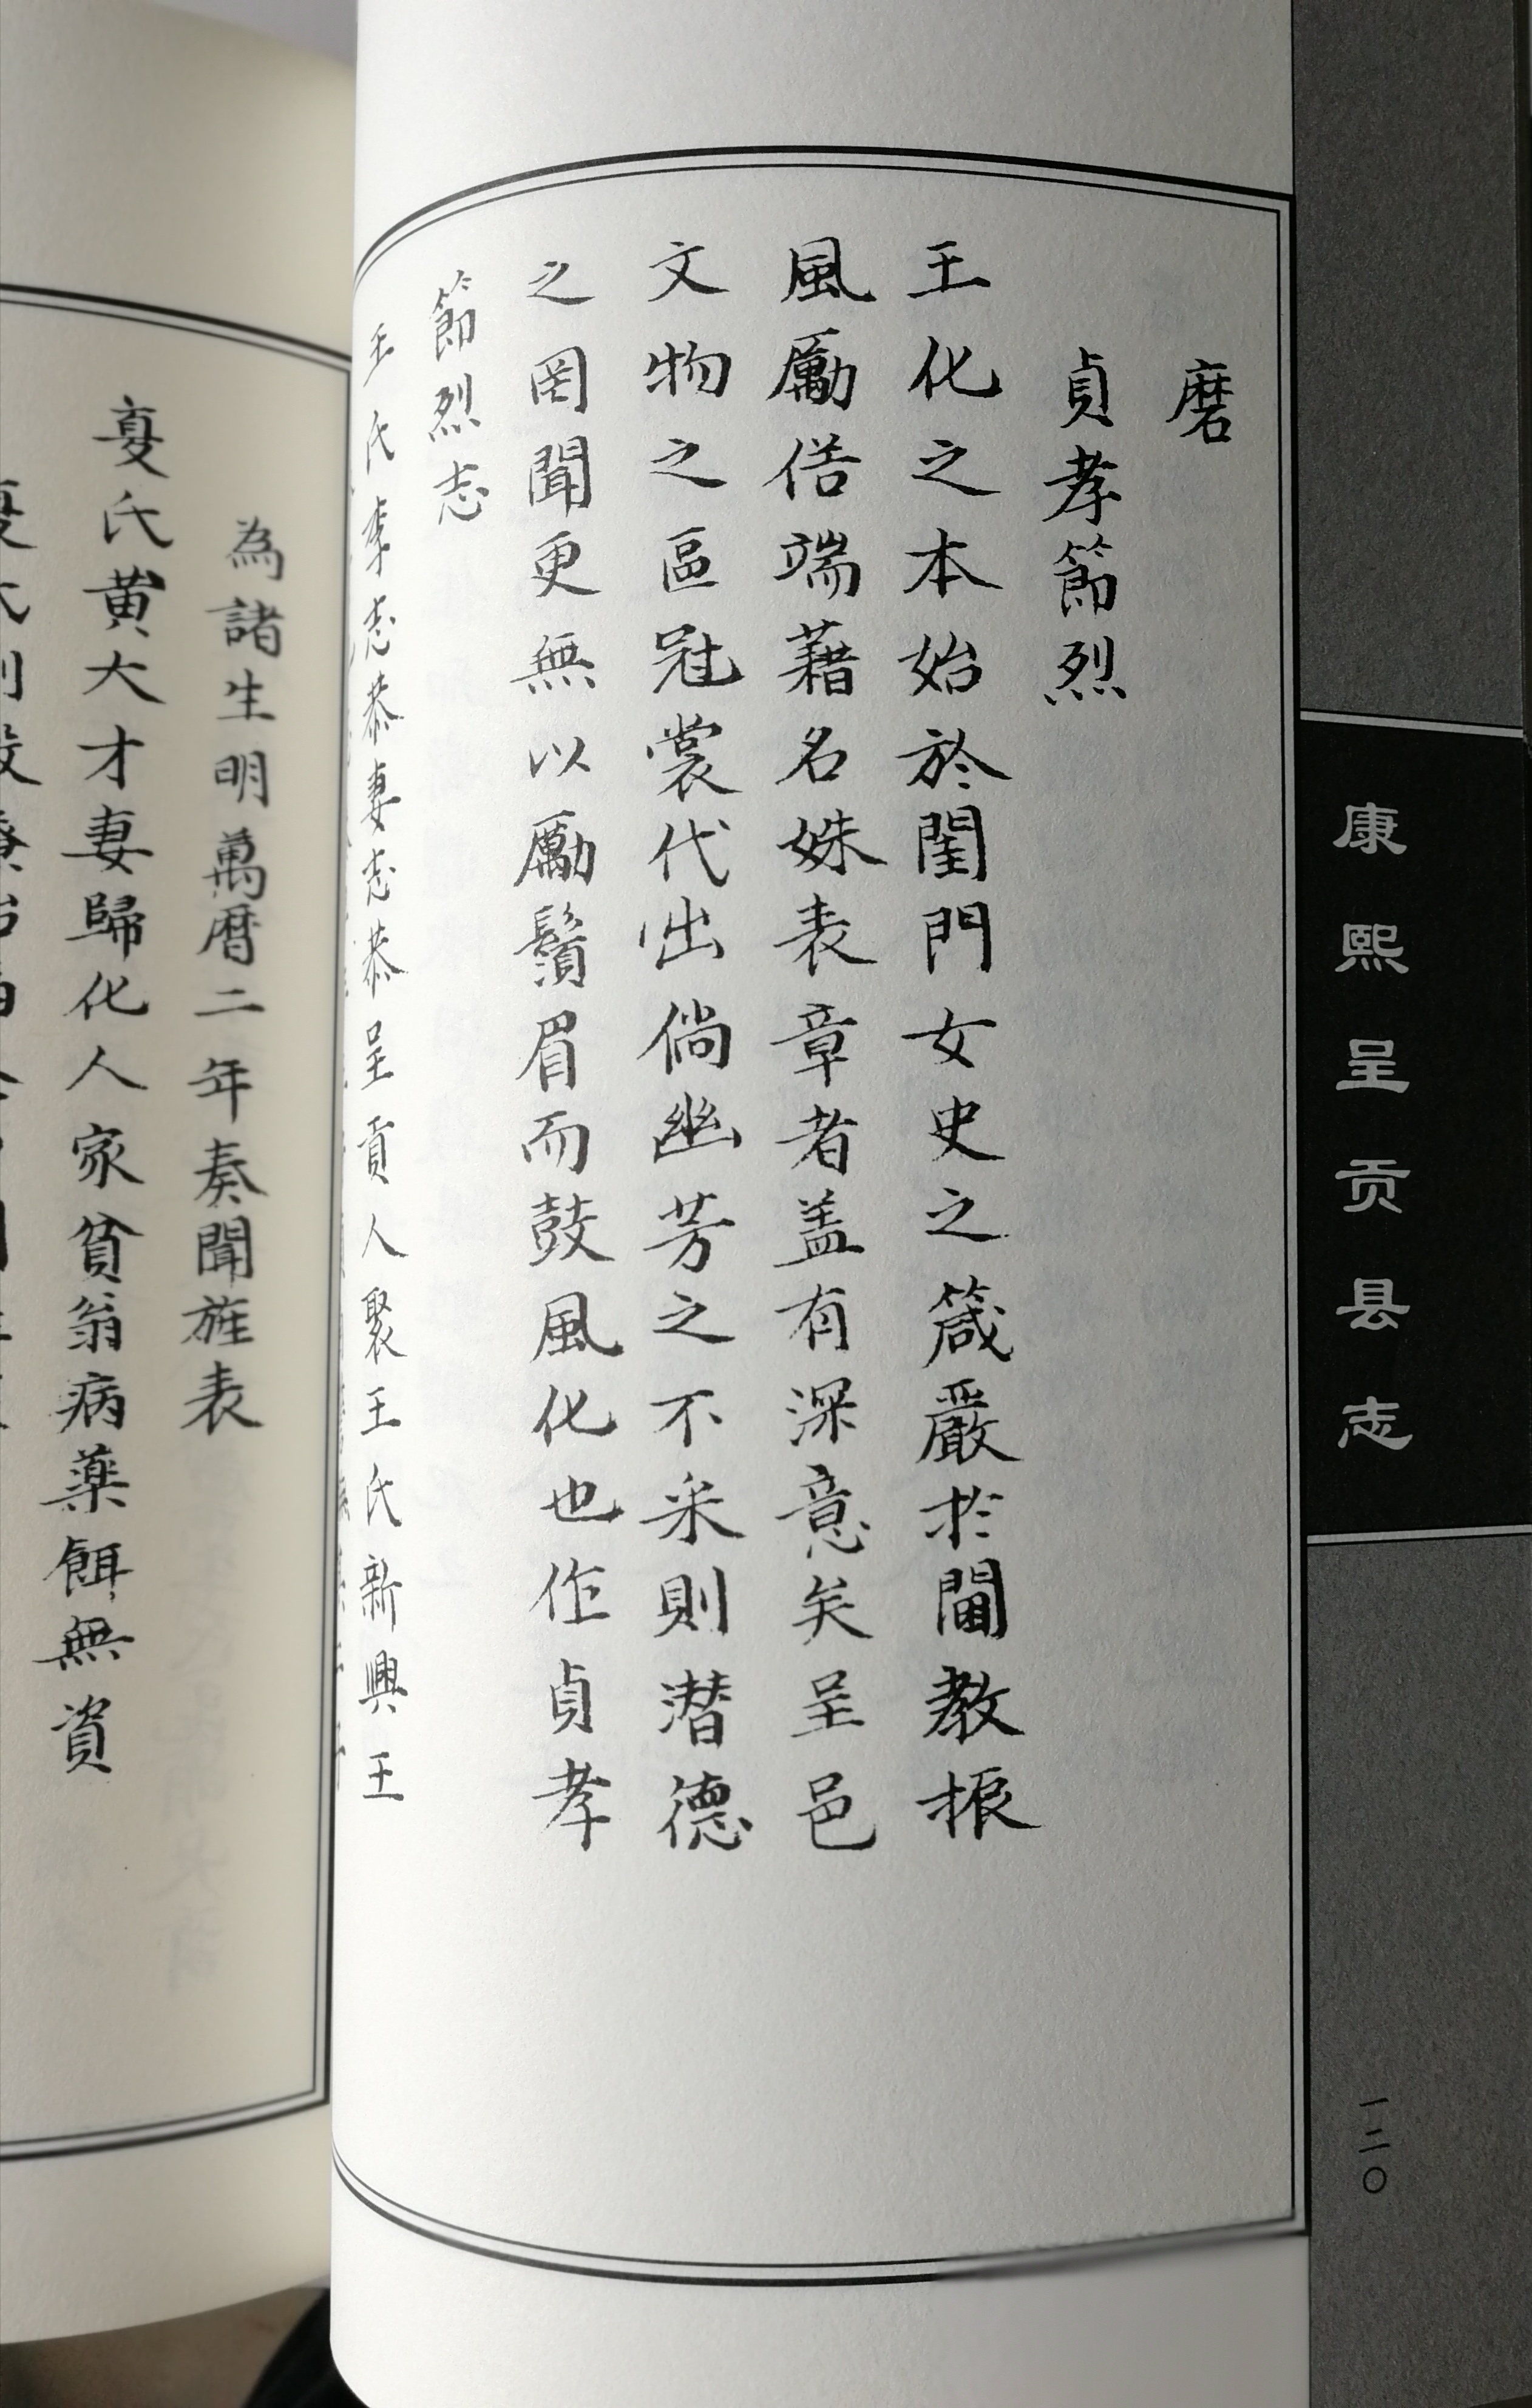 康熙呈贡县志
一二〇
磨
貞孝節烈
王化之本始於閨門女史之箴嚴於閫教振
風勵俗端藉名姝表章者盖有深意矣呈邑
文物之區冠裳代出倘幽芳之不采則潜德
之罔聞更無以勵鬚眉而鼓風化也作貞孝
節烈志
王氏李志恭妻志恭呈貢人聚王氏新興王
為諸生明萬曆二年奏聞旌表
氏黄大才妻歸化人家貧翁病藥餌無資